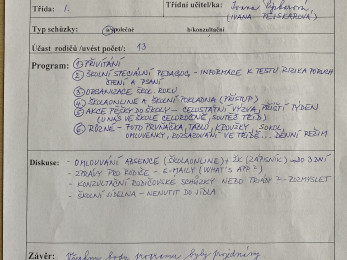 Třída: 1. Třídní učitel/ka: Ivana
(IVANA
Typ schůzky: a)společné b)konzultační
Účast rodičů /uvést počet/: 13
Program: ① PŘIVÍTÁNÍ
② ŠKOLNÍ SPECIÁLNÍ PEDAGOG - INFORMACE K TESTU RIZIKA PORUCH
ČTENÍ A PSANÍ
③ ORGANIZACE ŠKOL. ROKU
④ ŠKOLAONLINE A ŠKOLNÍ POKLADNA (PŘÍSTUP)
⑤ AKCE PĚŠKY DO ŠKOLY - CELOSTÁTNÍ VÝZVA, PŘÍŠTÍ TÝDEN
(U NÁS VE ŠKOLE CELOROČNĚ, SOUTĚŽ TŘÍD)
⑥ RŮZNÉ - FOTO PRVŇÁČKA, TABLO, KROUŽKY, SOKOL,
OMLUVENKY, ROZSAZOVÁNÍ VE TŘÍDĚ... DENNÍ REŽIM
Diskuse: - OMLOUVÁNÍ ABSENCE (ŠKOLAONLINE), ŽK (ZÁPISNÍK) DO 3 DNÍ
- ZPRÁVY PRO RODIČE - E-MAILY (WHAT'S APP?)
- KONZULTAČNÍ RODIČOVSKÉ SCHŮZKY NEBO TRIÁDY? - ROZMYSLET
- ŠKOLNÍ JÍDELNA - NENUTIT DO JÍDLA
Závěr: Všechny body programu byly projednány